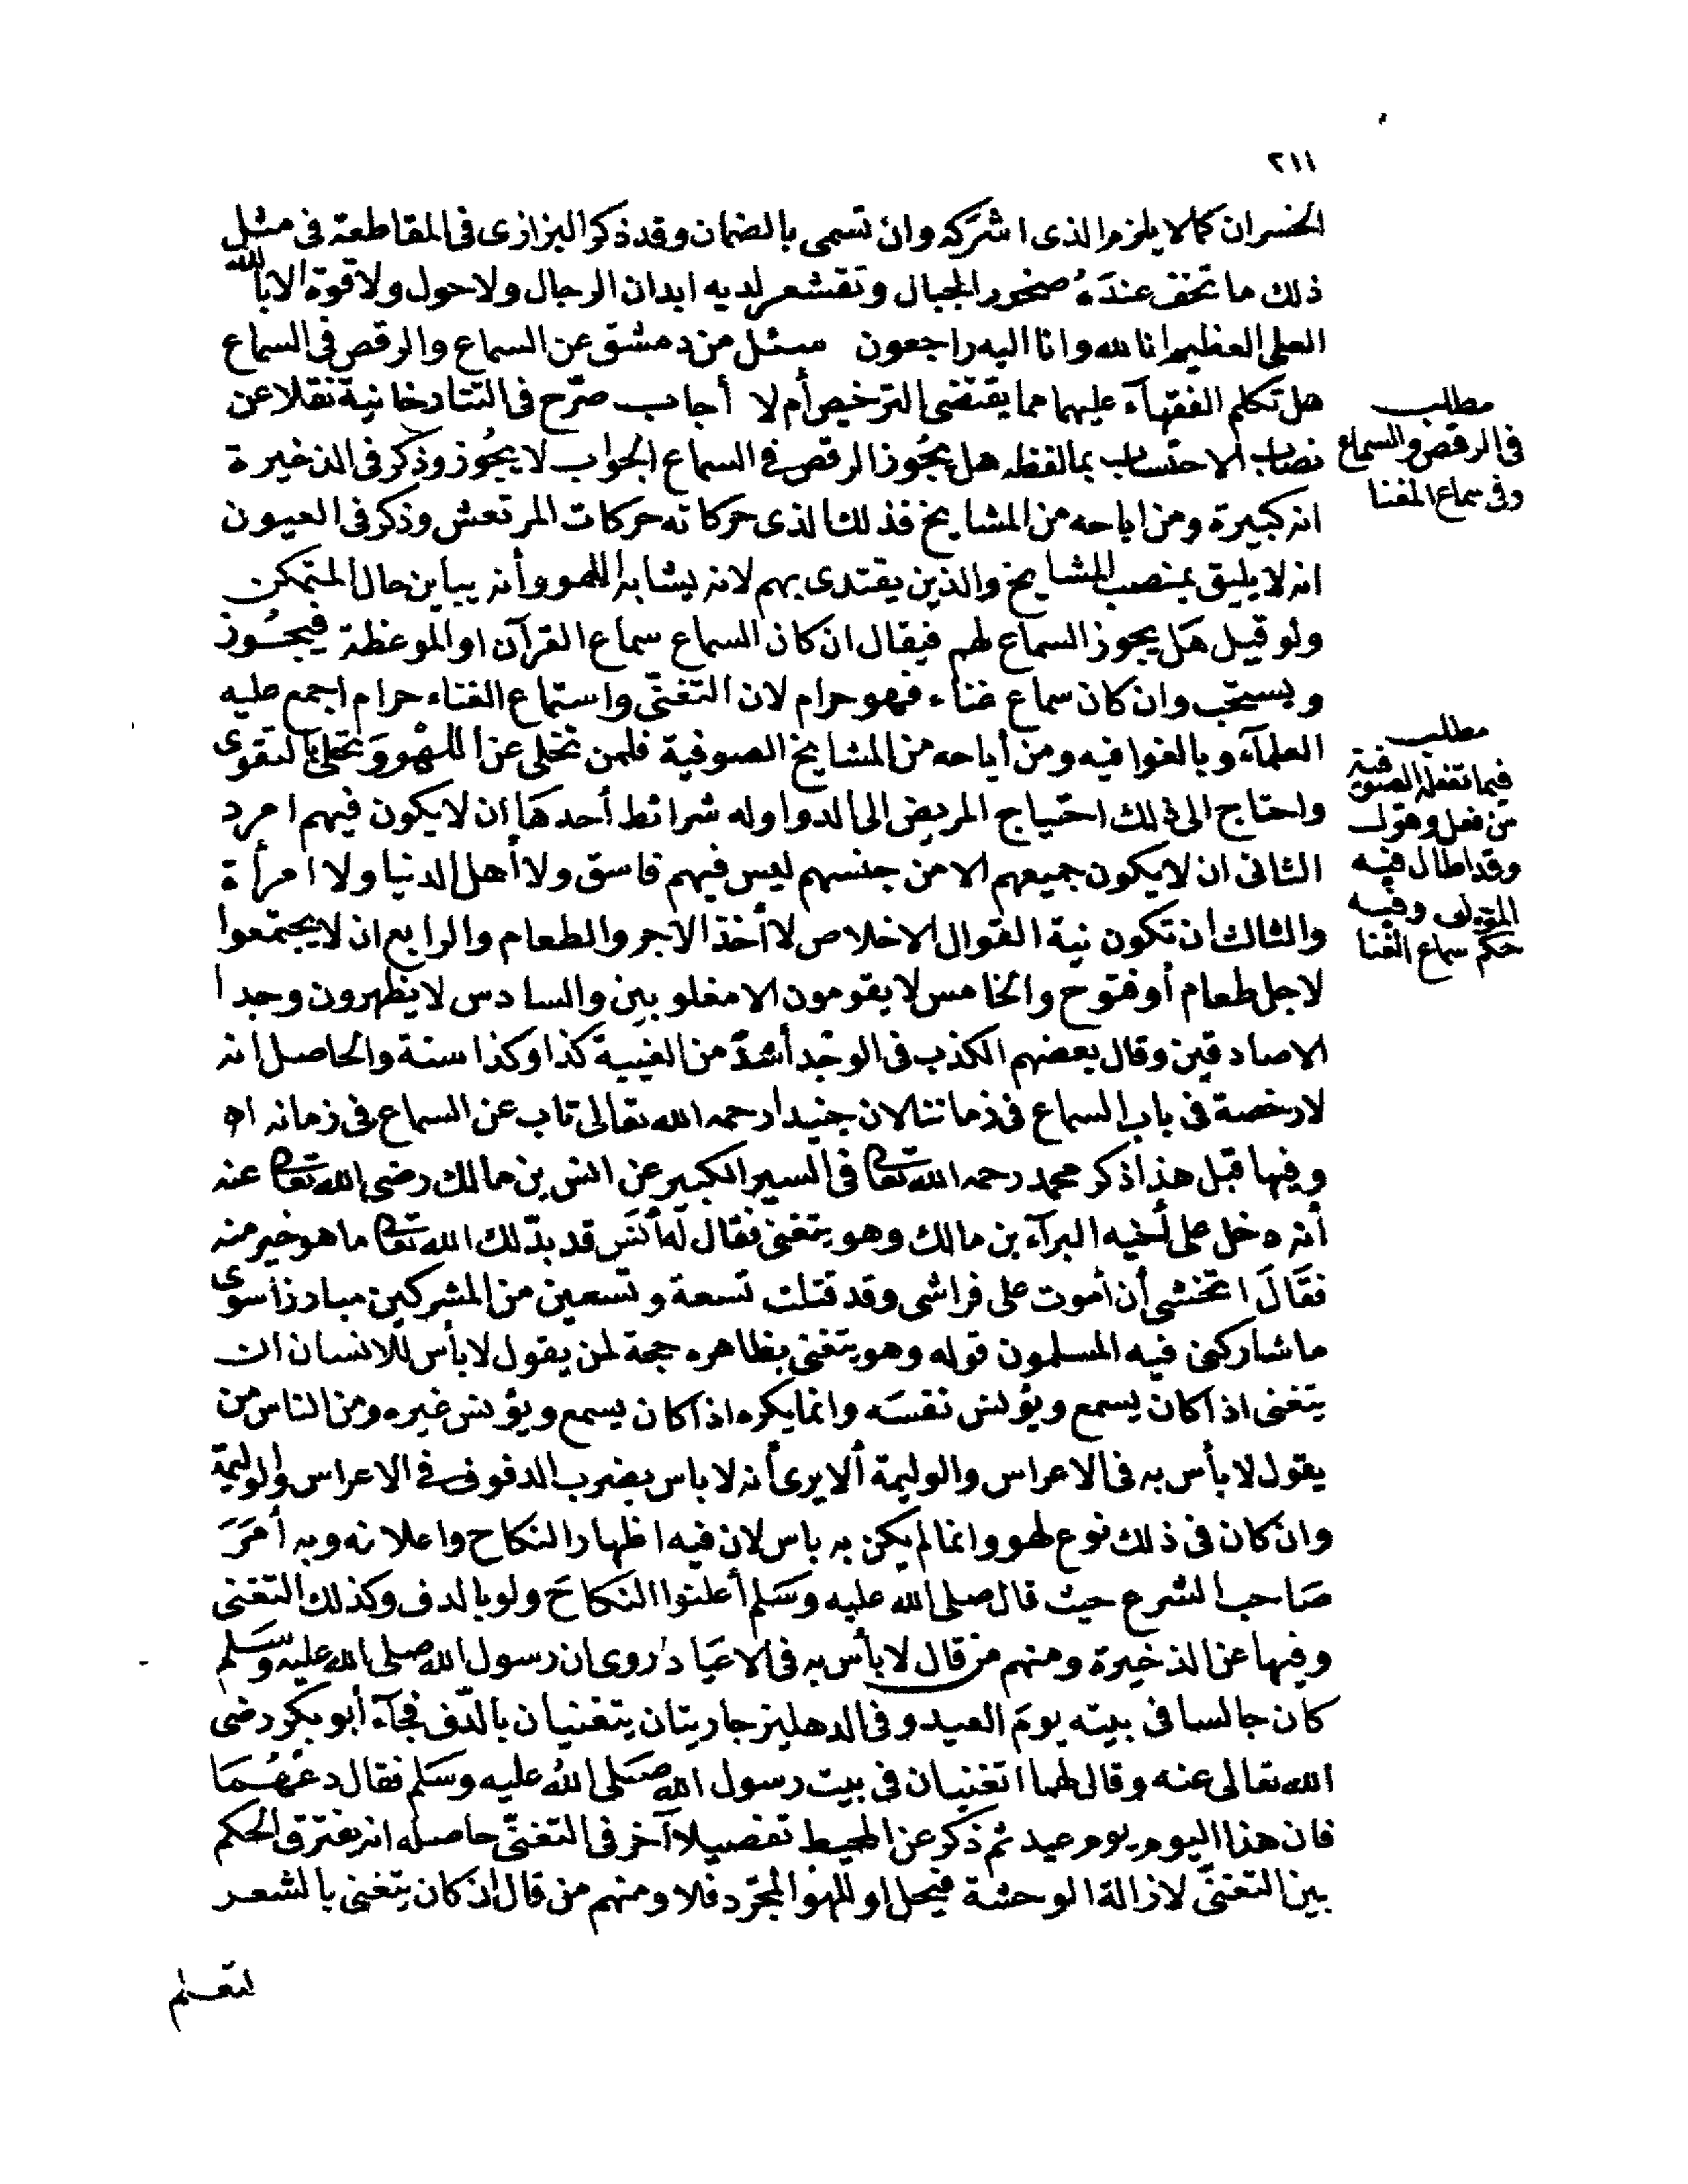 ٢١١
الخسران كما لا يلزم الذى اشركه وان تسمى بالضمان وقد ذكر البزازى فى المقاطعة فى مثل
ذلك ما تخف عنده صخور الجبال وتقشعر لديه ابدان الرجال ولا حول ولا قوة الا بالله
العلى العظيم انا لله وانا اليه راجعون سئل من دمشق عن السماع والرقص فى السماع
هل تكلم الفقهآء عليهما مما يقتضى الترخيص أم لا أجاب صرّح فى التتارخانية نقلا عن
نصاب الاحتساب بما لفظه هل يجُوز الرقص فى السماع الجواب لا يجُوز وذكر فى الذخيرة
انه كبيرة ومن اباحه من المشايخ فذلك الذى حركاته حركات المرتعش وذكر فى العيون
انه لا يليق بمنصب المشايخ والذين يقتدى بهم لانه يشابه اللهو وأنه يباين حال المتمكن
ولو قيل هَل يجوز السماع لهم فيقال ان كان السماع سماع القرآن او الموعظة فيجُوز
ويستحّب وان كان سماع غناء فهو حرام لان التغنّى واستماع الغناء حرام اجمع عليه
العلمآء وبالغوا فيه ومن أباحه من المشايخ الصوفية فلمن تخلى عن اللهْو وَتحلى بالتقوى
واحتاج الى ذلك احتياج المريض الى الدوا وله شرائط أحدهَا ان لا يكون فيهم امرد
الثانى ان لا يكون جميعهم الا من جنسهم ليس فيهم فاسق ولا أهل الدنيا ولا امرأة
والثالث ان تكون نية القوال الاخلاص لا أخذ الاجر والطعام والرابع ان لا يجتمعوا
لاجل طعام أو فتوح والخامس لا يقومون الا مغلوبين والسادس لا يظهرون وجدا
الا صادقين وقال بعضهم الكذب فى الوجْد أشدّ من الغيبة كذا وكذا سنة والحاصل انه
لا رخصة فى باب السماع فى زماننا لان جنيدا رحمه الله تعالى تاب عن السماع فى زمانه اه
وفيها قبل هذا ذكر محمد رحمه الله تعا فى السير الكبير عن انس بن مالك رضى الله تعا عنه
أنه دخل على أخيه البرآء بن مالك وهو يتغنى فقال له أنَس قد بدّلك الله تعا ما هو خير منه
فقَالَ اتخشى أن أموت على فراشى وقد قتلت تسعة وتسعين من المشركين مبارزا سوى
ما شاركنى فيه المسلمون قوله وهو يتغنى بظاهره حجة لمن يقول لا بأس للانسان ان
يتغنى اذا كان يسمع ويؤنس نفسَه وانما يكره اذا كان يسمع ويؤنس غيره ومن الناس من
يقول لا بأس به فى الاعراس والوليمة ألا يرى أنه لا باس بضرب الدفوف فى الاعراس والوليمة
وان كان فى ذلك نوع لهو وانما لم يكن به باس لان فيه اظهار النكاح واعلانه وبه أمَرَ
صَاحب الشرع حيث قال صلى الله عليه وسَلم أعلنوا النكاحَ ولو بالدف وكذلك التغنى
وفيها عن الذخيرة ومنهم من قال لا بأس به فى الاعيَاد روى ان رسول الله صلى الله عليه وسَلم
كان جالسا فى بيته يومَ العيد وفى الدهليز جاريتان يتغنيان بالدّف فجآء أبو بكر رضى
الله تعالى عنه وقال لهما اتغنيان فى بيت رسول الله صَلى اللهُ عليه وسَلم فقال دعهُمَا
فان هذا اليوم يوم عيد ثم ذكر عن المحيط تفصيلا آخر فى التغنّى حاصله انه يفترق الحكم
بين التغنّى لازالة الوحشة فيحل او للهو المجّرد فلا ومنهم من قال ان كان يتغنى بالشعر
لتعلم
مطلب
فى الرقص والسماع
وفى سماع الغنا
مطلب
فيما تفعله الصوفية
من فعل وقول
وقد اطال فيه
المؤلف وفيه
حكم سماع الغنا